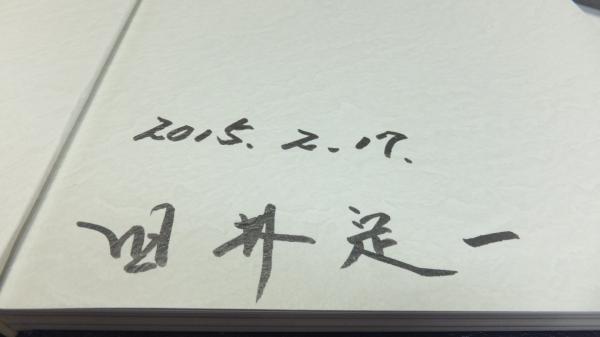 2015. 2. 17.
井 足 一